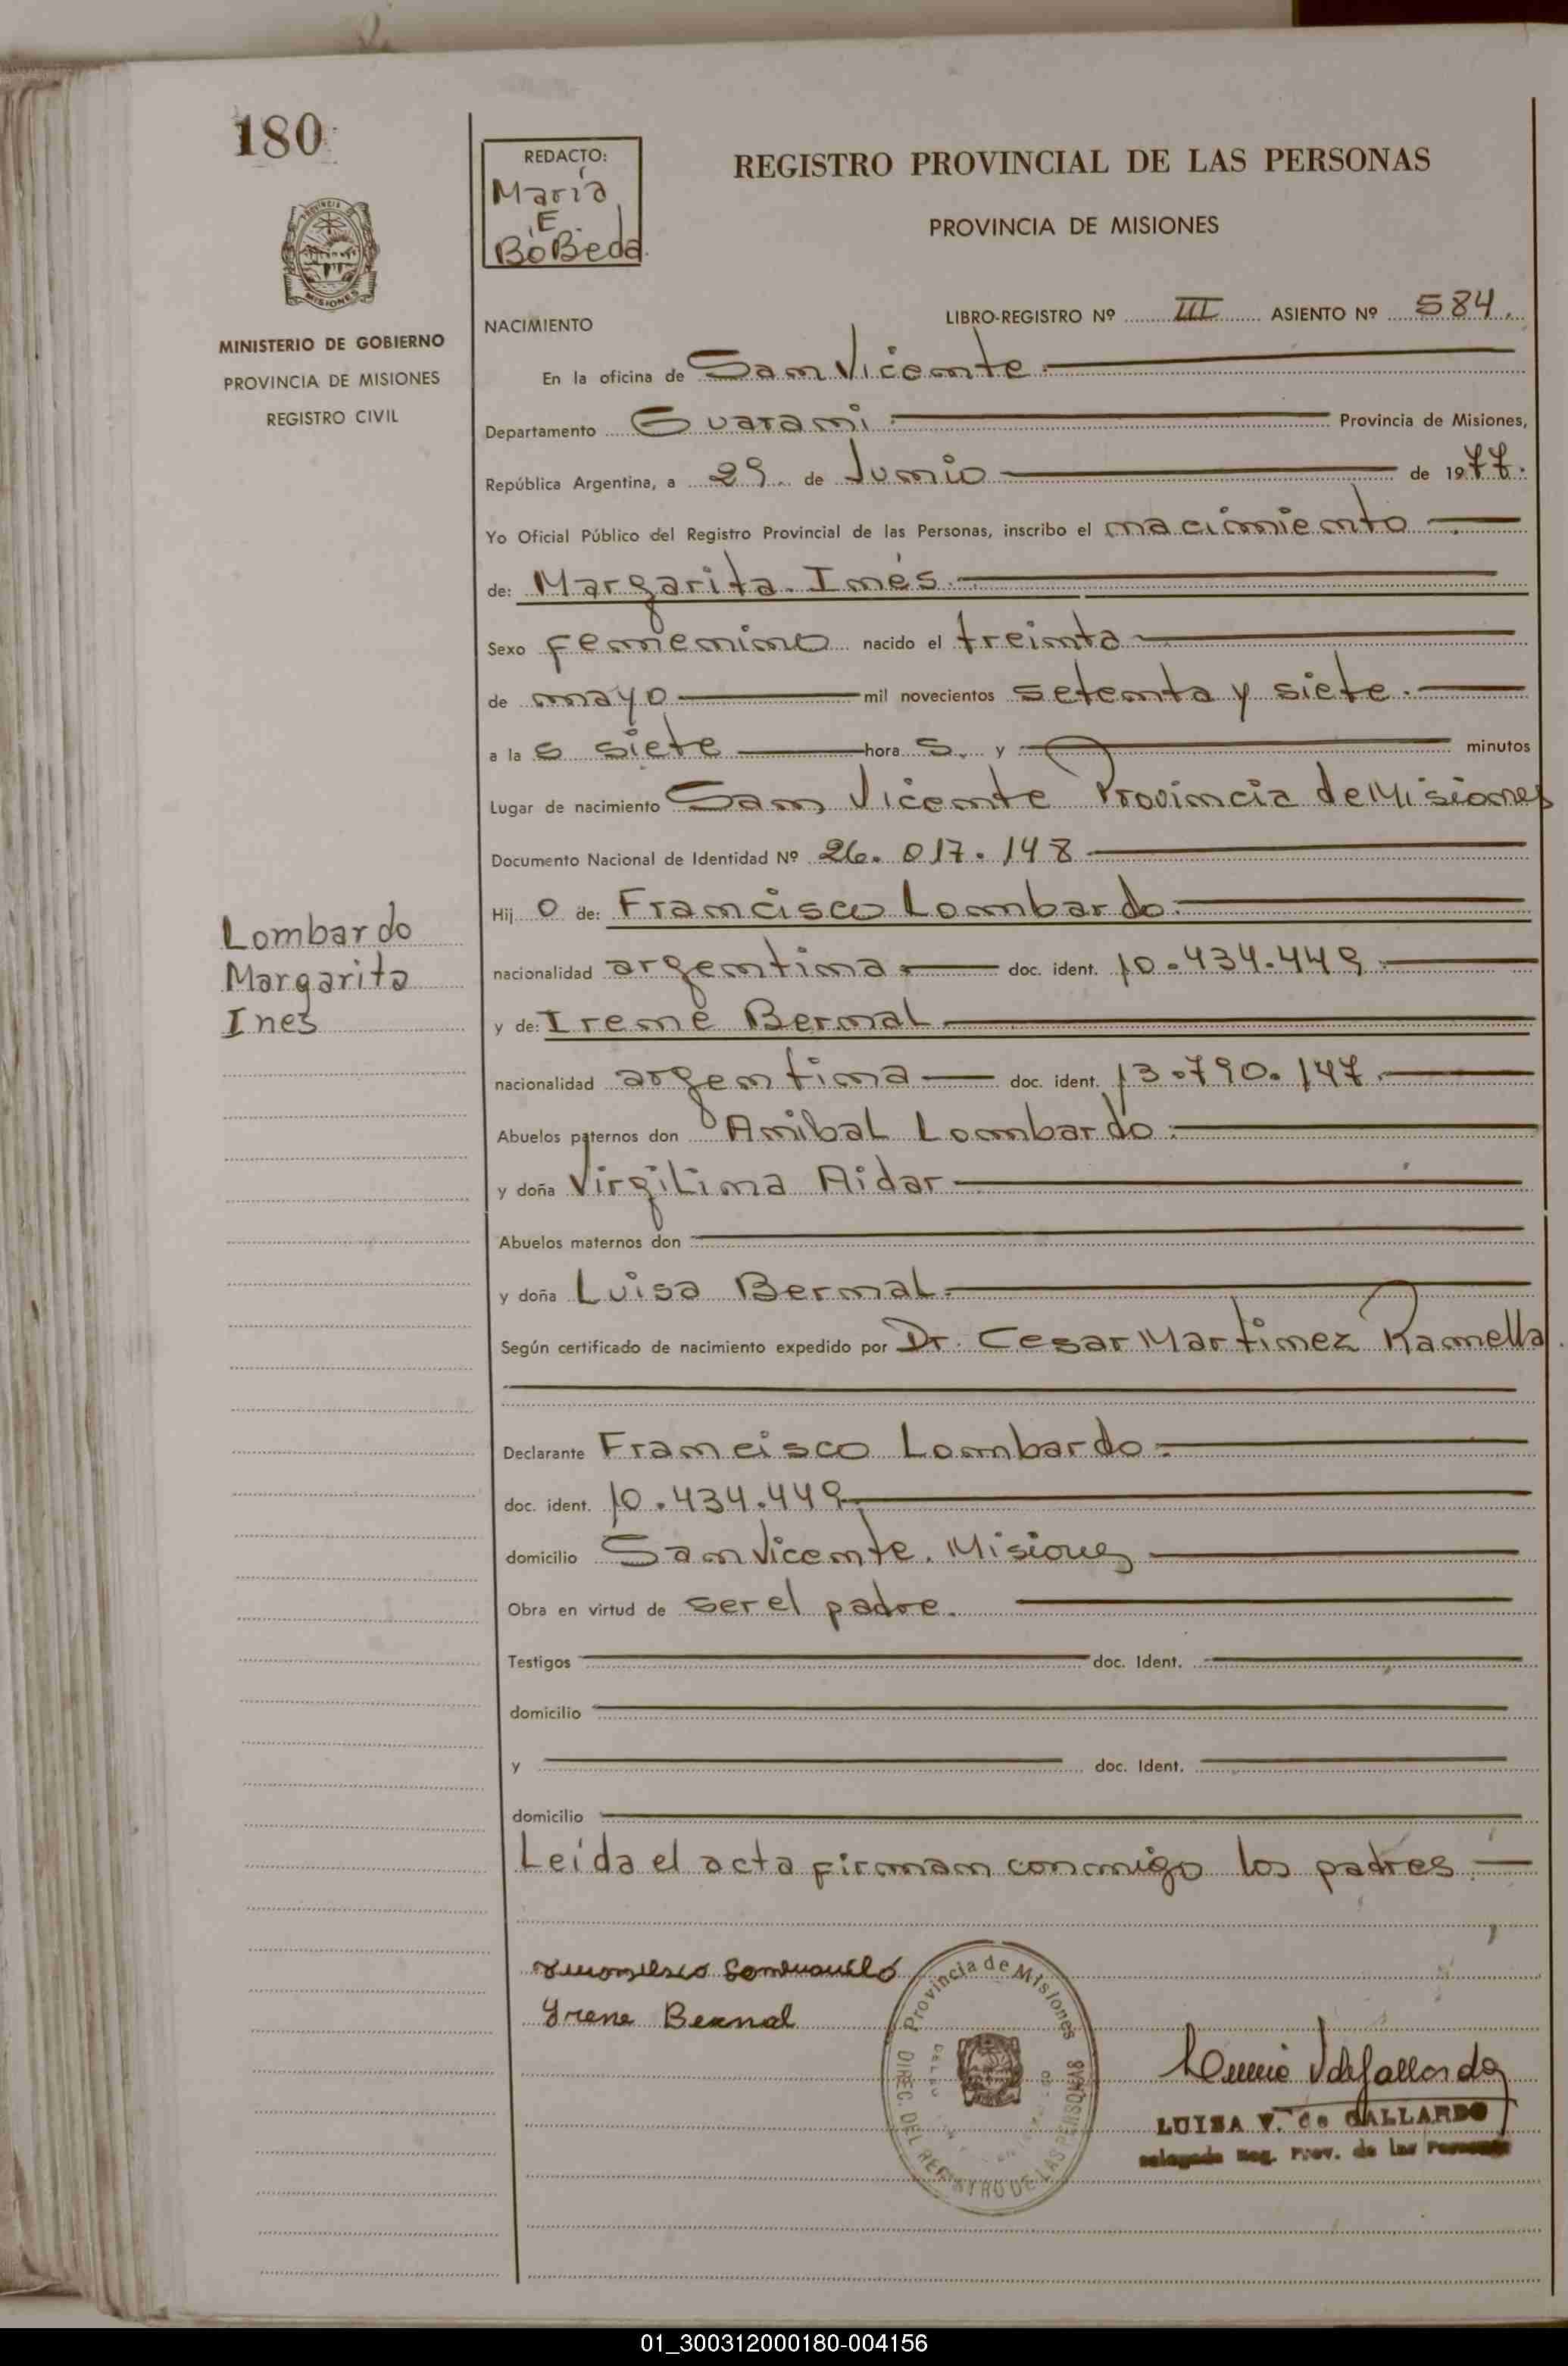 180
REDACTO:
María
E.
BóBeda
REGISTRO PROVINCIAL DE LAS PERSONAS
PROVINCIA DE MISIONES
PROVINCIA
MISIONES
MINISTERIO DE GOBIERNO
PROVINCIA DE MISIONES
REGISTRO CIVIL
NACIMIENTO
LIBRO-REGISTRO Nº III ASIENTO Nº 584.
En la oficina de San Vicente
Departamento Guarani Provincia de Misiones,
República Argentina, a 29. de Junio de 1977.
Yo Oficial Público del Registro Provincial de las Personas, inscribo el nacimiento
de: Margarita Inés
Sexo femenino nacido el treinta
de mayo mil novecientos setenta y siete.
a la s siete hora s. y minutos
Lugar de nacimiento San Vicente Provincia de Misiones
Documento Nacional de Identidad Nº 26.017.148
Hij o de: Francisco Lombardo
Lombardo
Margarita
Ines
nacionalidad argentina doc. ident. 10.434.449
y de: Irene Bernal
nacionalidad argentina doc. ident. 13.790.147
Abuelos paternos don Anibal Lombardo
y doña Virgilina Aidar
Abuelos maternos don
y doña Luisa Bernal
Según certificado de nacimiento expedido por Dr. Cesar Martinez Ramella
Declarante Francisco Lombardo
doc. ident. 10.434.449
domicilio San Vicente. Misiones
Obra en virtud de ser el padre.
Testigos doc. Ident.
domicilio
y doc. Ident.
domicilio
Leída el acta firman conmigo los padres.
Irene Bernal
Provincia de Misiones
DIREC. DEL REGISTRO DE LAS PERSONAS
LUISA V. de GALLARDO
Delegada Reg. Prov. de las Personas
01_300312000180-004156